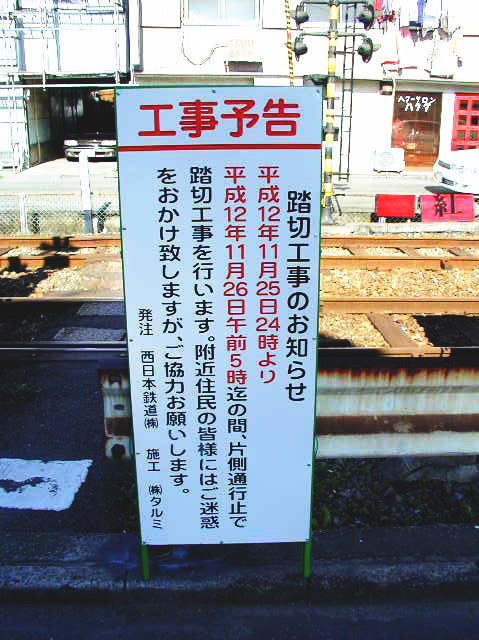 工事予告
踏切工事のお知らせ
平成12年11月25日24時より
平成12年11月26日午前5時迄の間、片側通行止で
踏切工事を行います。附近住民の皆様にはご迷惑
をおかけ致しますが、ご協力お願いします。
発注 西日本鉄道㈱ 施工 ㈱タルミ
ヘアーサロン